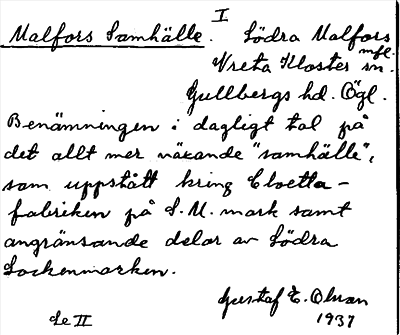 I
Malfors Samhälle. Södra Malfors
mfl.
Vreta Kloster sn.
Gullbergs hd. Ögl.
Benämningen i dagligt tal på
det allt mer växande "samhälle",
som uppstått kring Cloetta-
fabriken på S. M. mark samt
angränsande delar av Södra
Sockenmarken.
Gustaf E. Olsson
Se II 1937